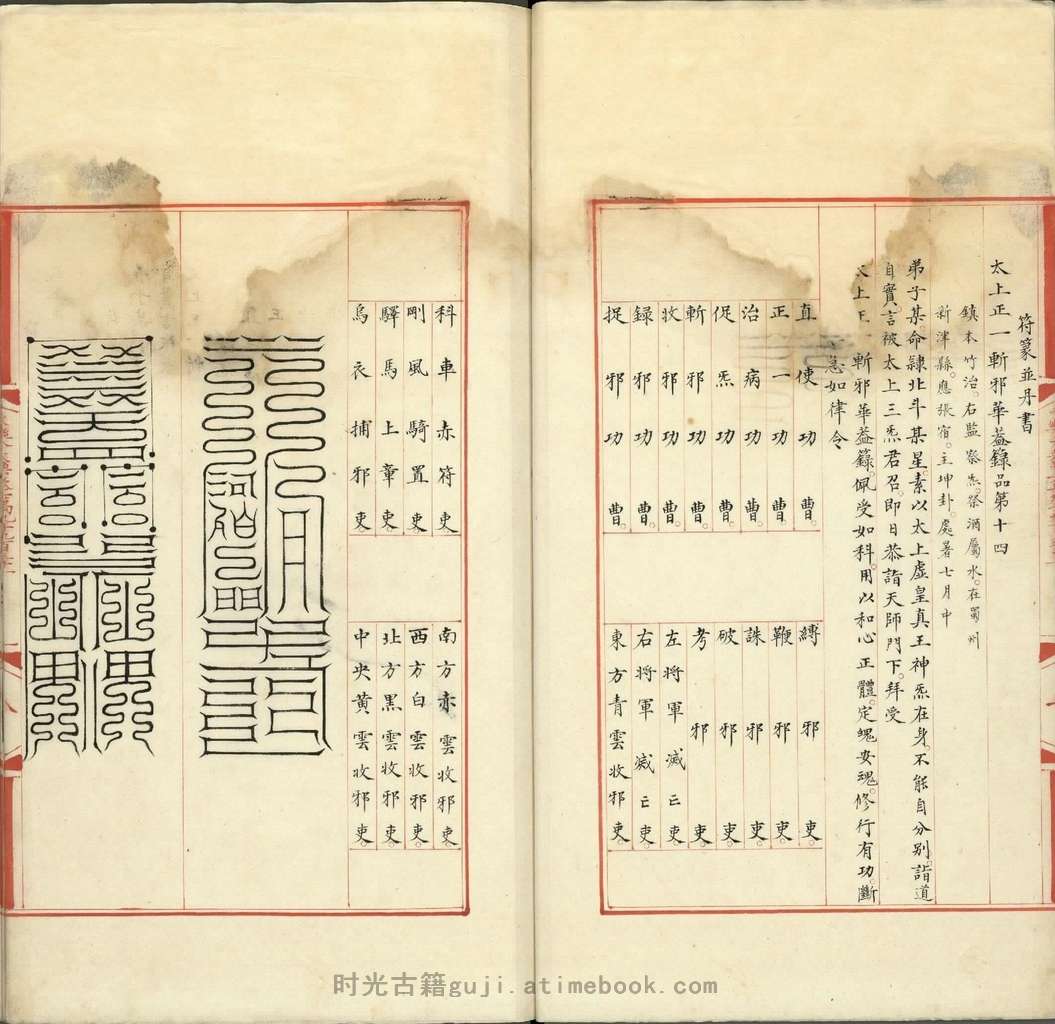 符篆並丹書
太上正一斬邪華葢籙品第十四
鎮本竹治。右監察炁祭酒屬水。在蜀州
新津縣。應張宿。主坤卦。處暑七月中
弟子某命隸北斗某星。素以太上虛皇真王神炁在身。不能自分别。詣道
自實。言被太上三炁君召。即日恭詣天師門下。拜受
太上正一斬邪華葢籙。佩受如科。用以和心正體。定魄安魂。修行有功。斷
急如律令
直使功曹。
正一功曹。
治病功曹。
促炁功曹。
斬邪功曹。
收邪功曹。
録邪功曹。
捉邪功曹。
縛邪吏。
鞭邪吏。
誅邪吏。
破邪吏。
考邪吏。
左將軍滅亡吏。
右將軍滅亡吏。
東方青雲收邪吏。
科車赤符吏。
剛風騎置吏。
驛馬上章吏。
烏衣捕邪吏
南方赤雲收邪吏。
西方白雲收邪吏。
北方黑雲收邪吏。
中央黄雲收邪吏。
时光古籍guji.atimebook.com